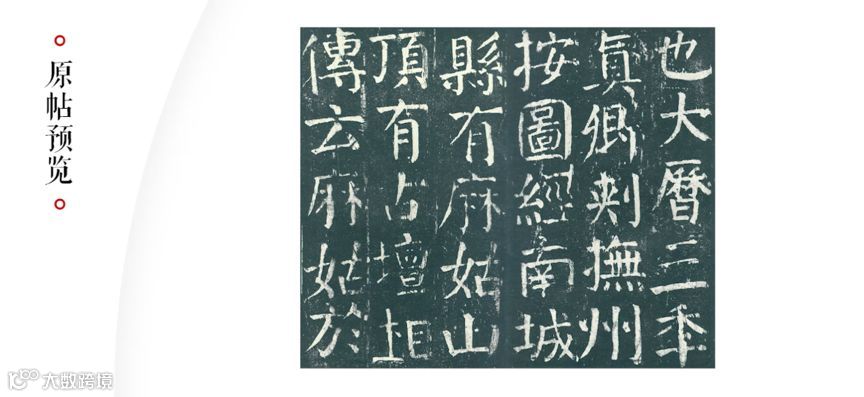 原帖预览
也大曆三年
真卿刺撫州
按圖經南城
縣有麻姑山
頂有古壇相
傳云麻姑於
大数跨境